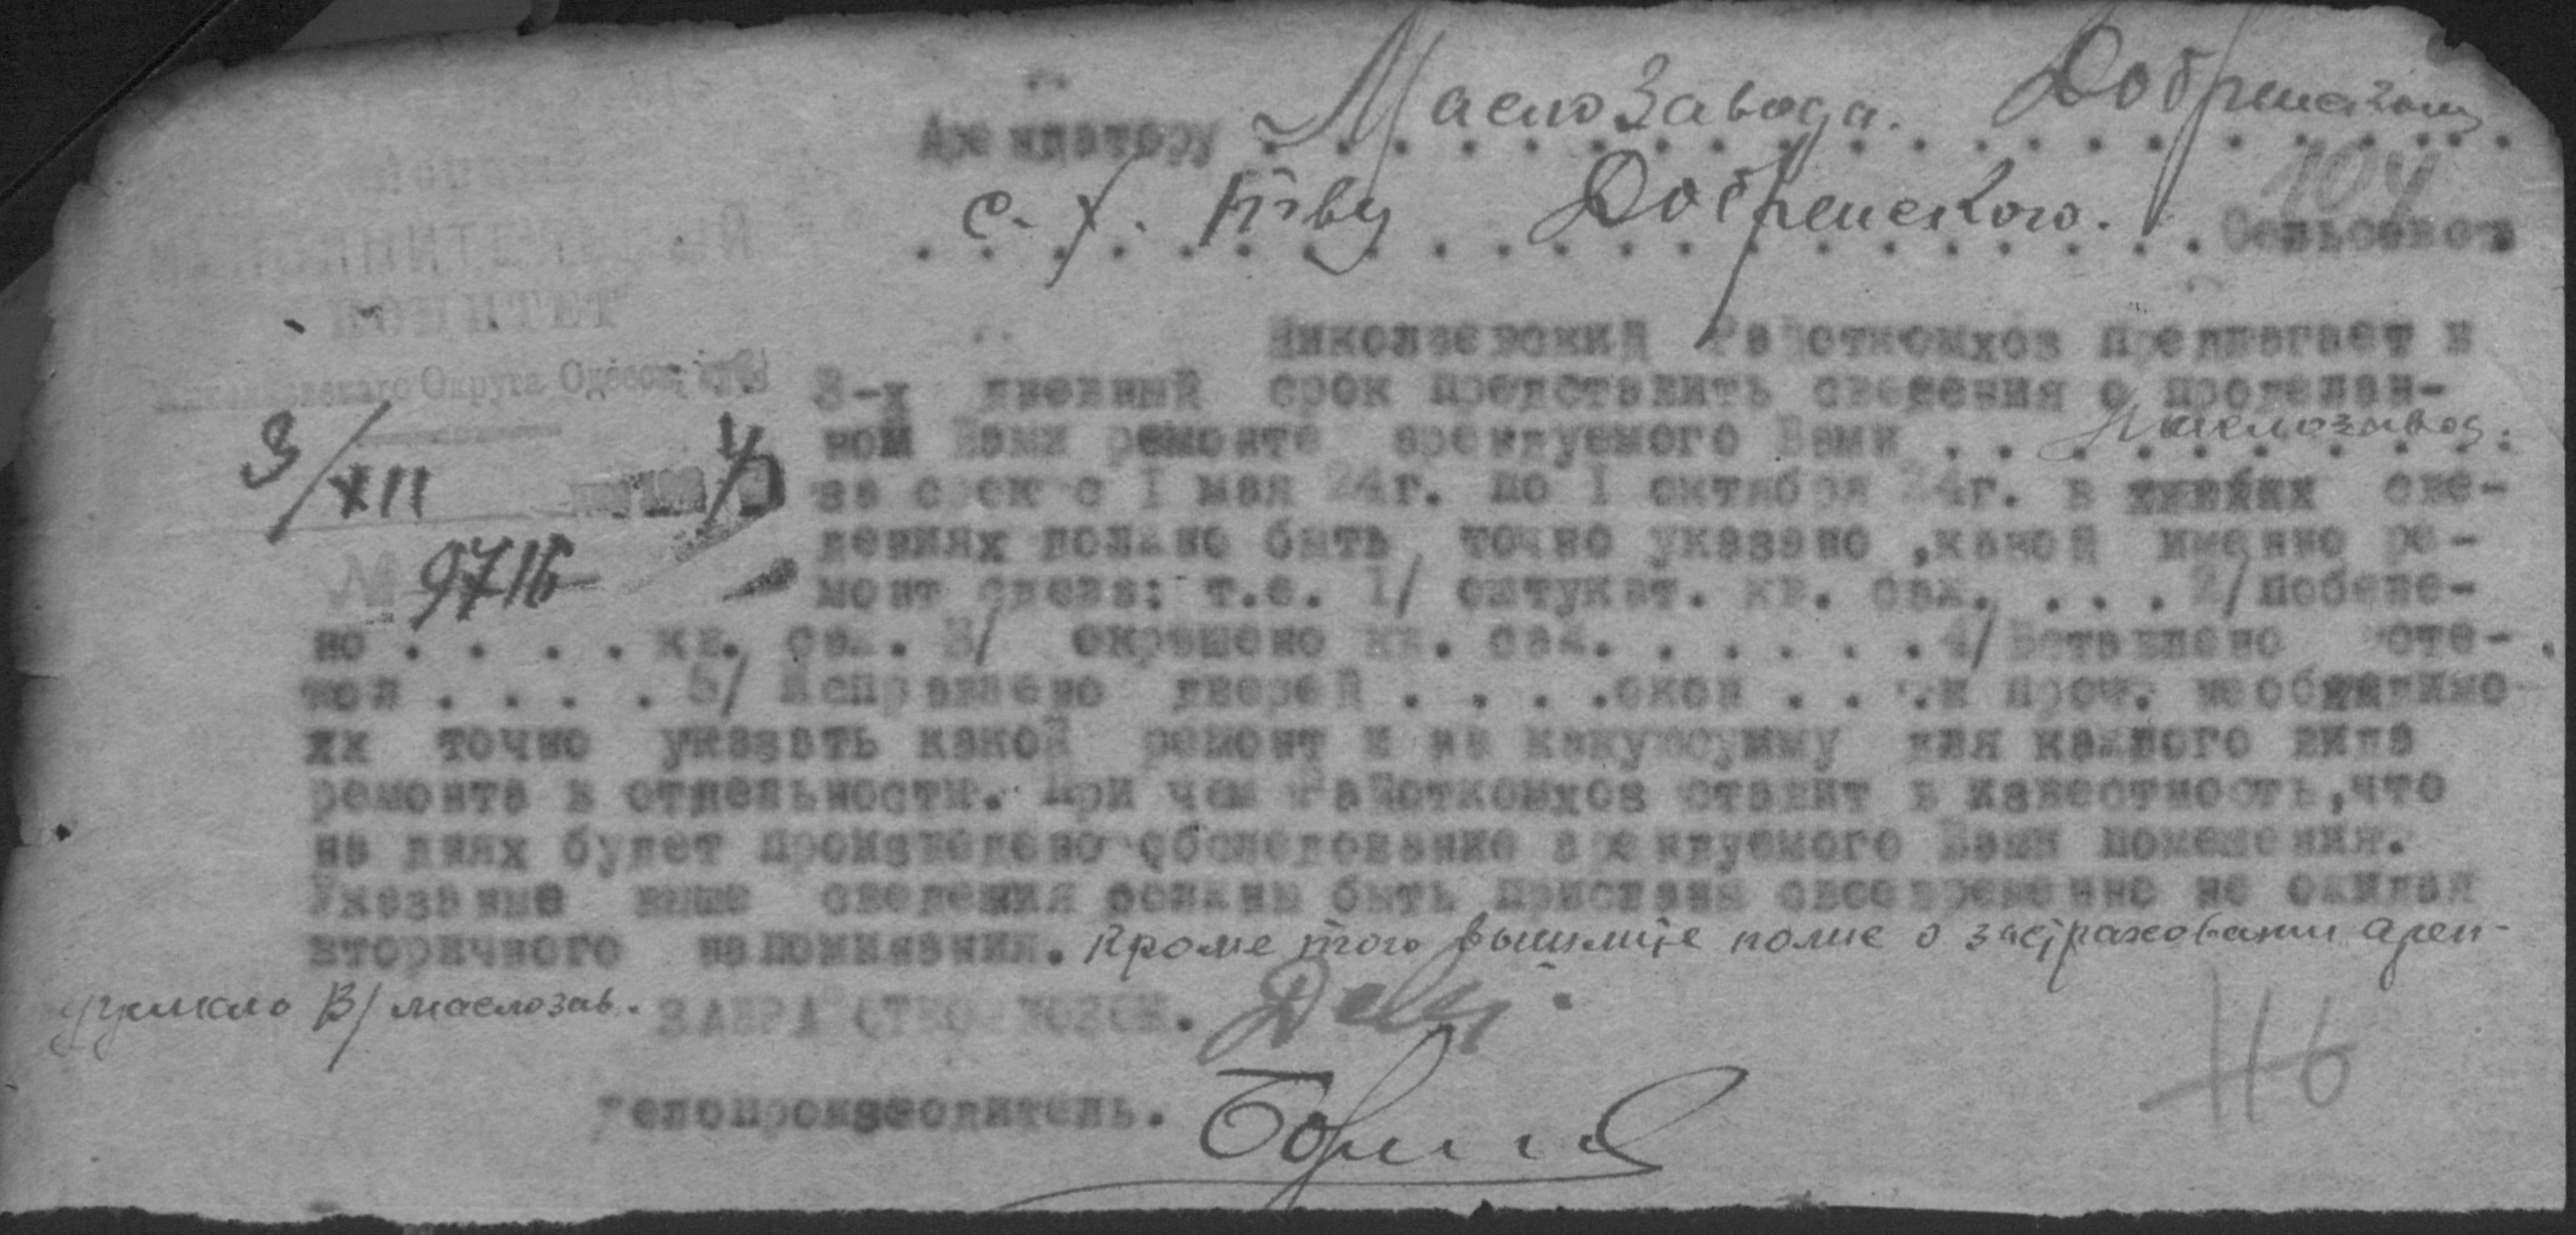 Арендатору Маслозавода. Добренскому
с. х. т-ву Добренского. Сельсовета
104
ИСПОЛНИТЕЛЬНЫЙ
КОМИТЕТ
Николаевского Округа Одесск. губ.
3/XII 4
№ 9716
Николаевский Райоткомхоз предлагает в
3-х дневный срок представить сведения о проделан-
ном Вами ремонте арендуемого Вами . . Маслозавод.
за срок с I мая 24г. по I октября 24г. в све-
дениях должно быть точно указано ,какой именно ре-
монт сделан: т.е. 1/ оштукат. кв. саж. . . . 2/ побеле-
но . . . . кв. саж. 3/ окрашено кв. саж. . . . . . 4/ Вставлено сте-
кол . . . . 5/ Исправлено дверей . . . .окон . . .и проч. необходимо
хх точно указать какой ремонт и на какуюсумму для каждого вида
ремонта в отдельности. При чем Райоткомхоз ставит в известность,что
на днях будет произведено обследование арендуемого Вами помещения.
Указаные выше сведения должны быть присланы своевременно не ожидая
вторичного напоминания. Кроме того вышлите полис о застраховании арен-
дуемого В/ маслозав.
ЗАВРАЙОТКОМХОЗОМ.
Делопроизводитель.
116